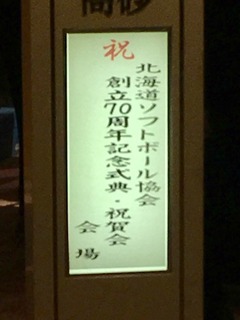 高砂
祝
北海道ソフトボール協会
創立70周年記念式典・祝賀会
会場